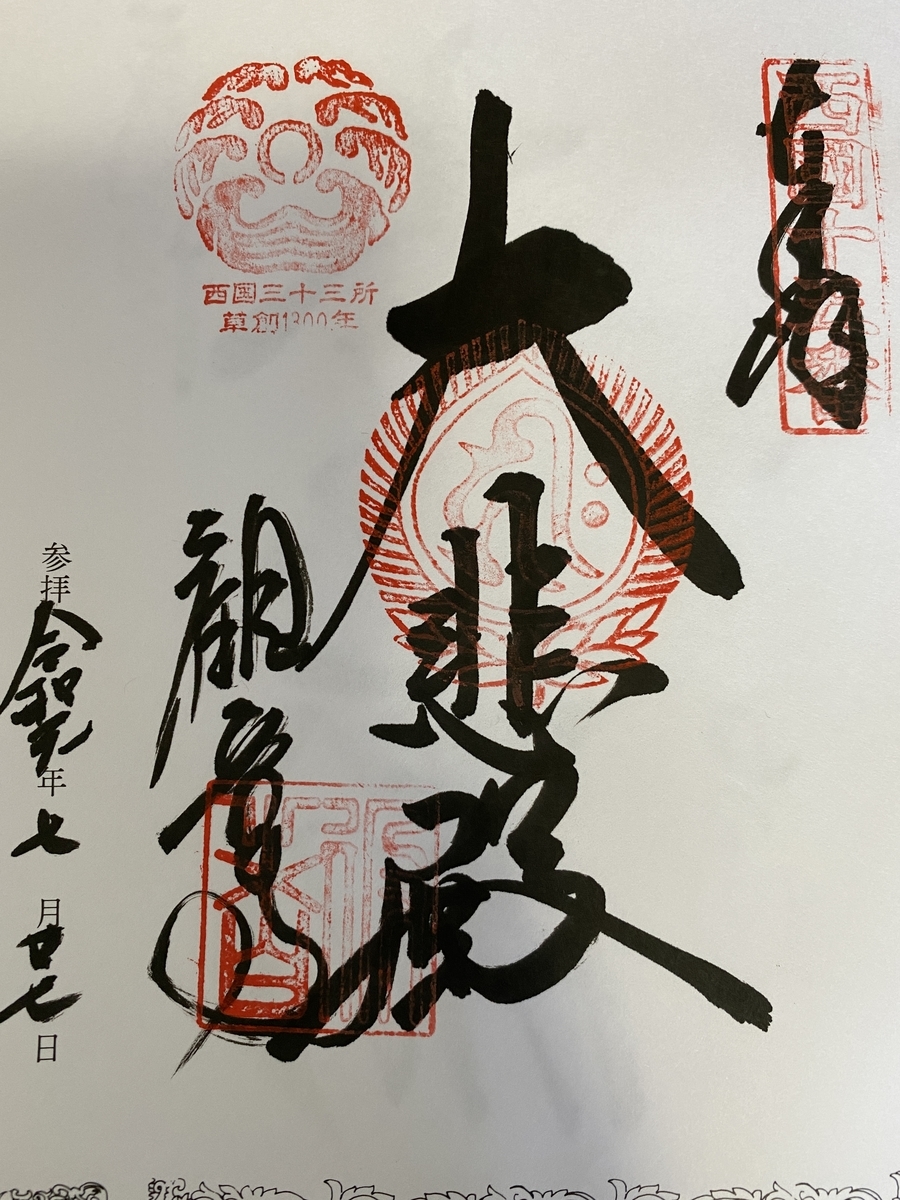 西國十五番
大悲殿
観音寺
西国三十三所
草創1300年
参拝 令和元年七月廿七日